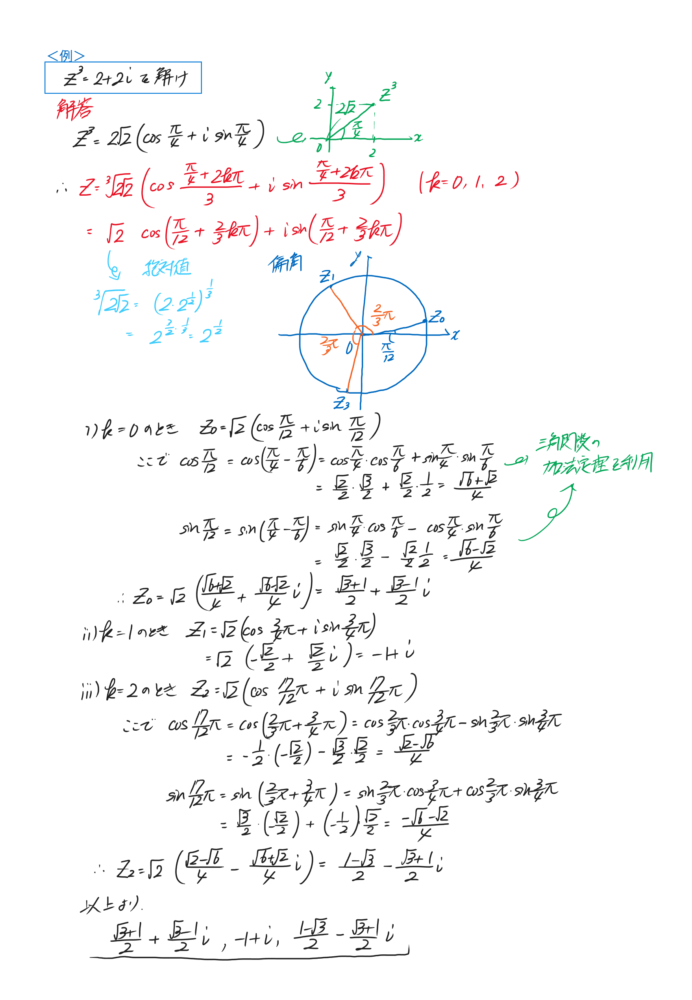 <例>
z³=2+2i を解け
解答
z³=2√2(cos π/4 + i sin π/4)
y
2
2√2
z³
π/4
0
2
x
∴ z=³√2√2 (cos (π/4+2kπ)/3 + i sin (π/4+2kπ)/3) (k=0, 1, 2)
= √2 cos(π/12 + 2/3 kπ) + i sin(π/12 + 2/3 kπ)
絶対値
³√2√2 = (2・2^(1/2))^(1/3)
= 2^(3/2・1/3) = 2^(1/2)
偏角
y
z₁
2/3π
z₀
x
2/3π
0
π/12
z₃
i) k=0のとき z₀=√2(cos π/12 + i sin π/12)
ここで cos π/12 = cos(π/4 − π/6) = cos π/4・cos π/6 + sin π/4・sin π/6
= √2/2・√3/2 + √2/2・1/2 = (√6+√2)/4
三角関数の
加法定理を利用
sin π/12 = sin(π/4 − π/6) = sin π/4 cos π/6 − cos π/4・sin π/6
= √2/2・√3/2 − √2/2 1/2 = (√6−√2)/4
∴ z₀=√2 ((√6+√2)/4 + (√6−√2)/4 i) = (√3+1)/2 + (√3−1)/2 i
ii) k=1のとき z₁=√2(cos 3/4π + i sin 3/4π)
=√2 (−√2/2 + √2/2 i) = −1+i
iii) k=2のとき z₂=√2(cos 17/12π + i sin 17/12π)
ここで cos 17/12π = cos(2/3π + 3/4π) = cos 2/3π・cos 3/4π − sin 2/3π・sin 3/4π
= −1/2・(−√2/2) − √3/2・√2/2 = (√2−√6)/4
sin 17/12π = sin(2/3π + 3/4π) = sin 2/3π・cos 3/4π + cos 2/3π・sin 3/4π
= √3/2・(−√2/2) + (−1/2)・√2/2 = (−√6−√2)/4
∴ z₂=√2 ((√2−√6)/4 − (√6+√2)/4 i) = (1−√3)/2 − (√3+1)/2 i
以上より.
(√3+1)/2 + (√3−1)/2 i , −1+i, (1−√3)/2 − (√3+1)/2 i